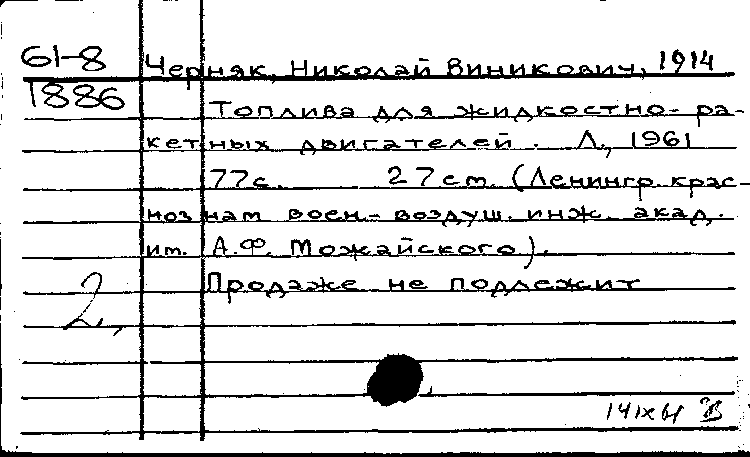 61-8 Черняк, Николай Виникович, 1914
1886 Топлива для жидкостно-ра-
кетных двигателей. Л., 1961
77с. 27cm. (Ленингр. крас-
ноз нам воен.-воздуш. инж. акад.
им. А.Ф. Можайского).
Продаже не подлежит
2,